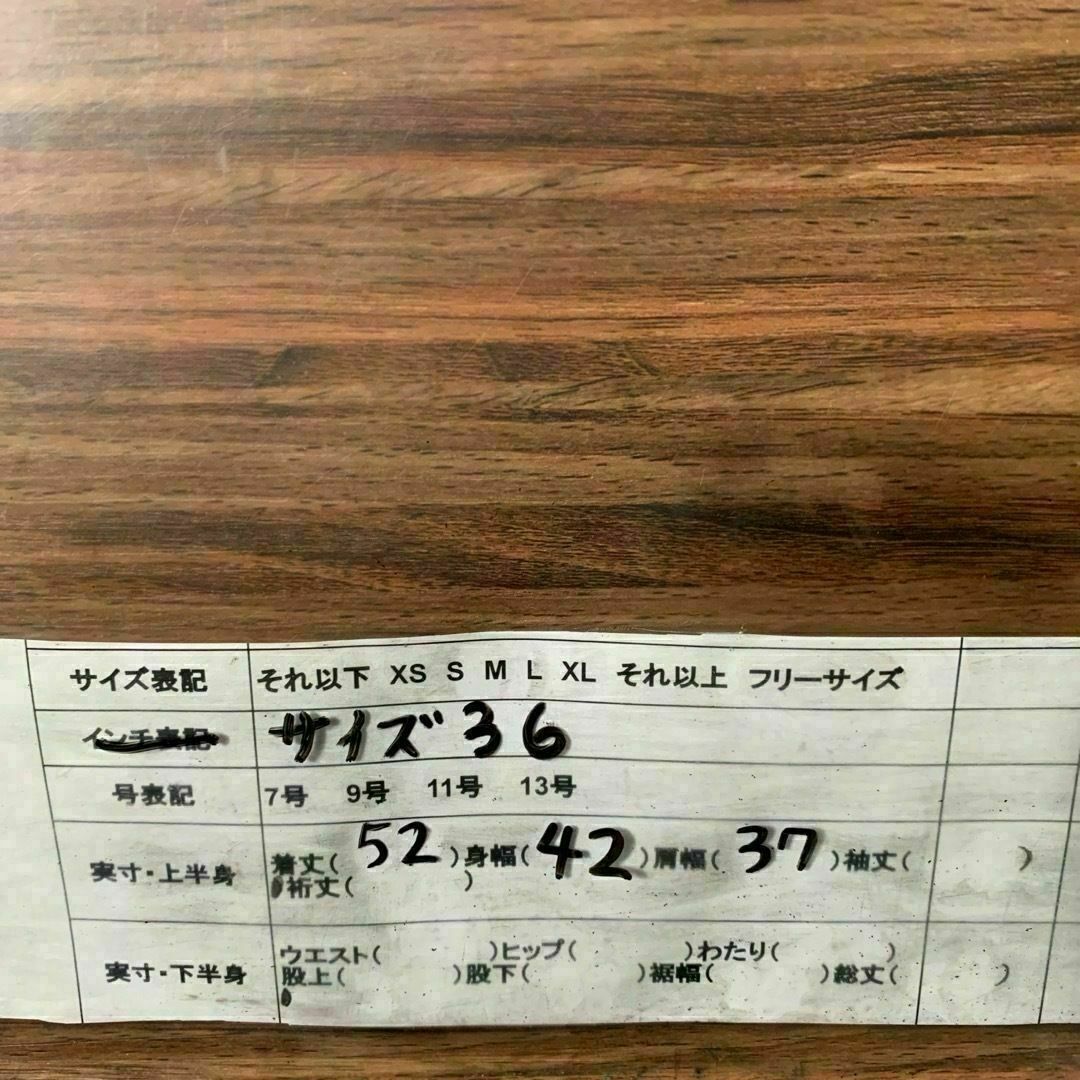 サイズ表記 それ以下 XS S M L XL それ以上 フリーサイズ
インチ表記 サイズ36
号表記 7号 9号 11号 13号
実寸・上半身 着丈( 52 )身幅( 42 )肩幅( 37 )袖丈( )
裄丈( )
実寸・下半身 ウエスト( )ヒップ( )わたり( )
股上( )股下( )裾幅( )総丈( )